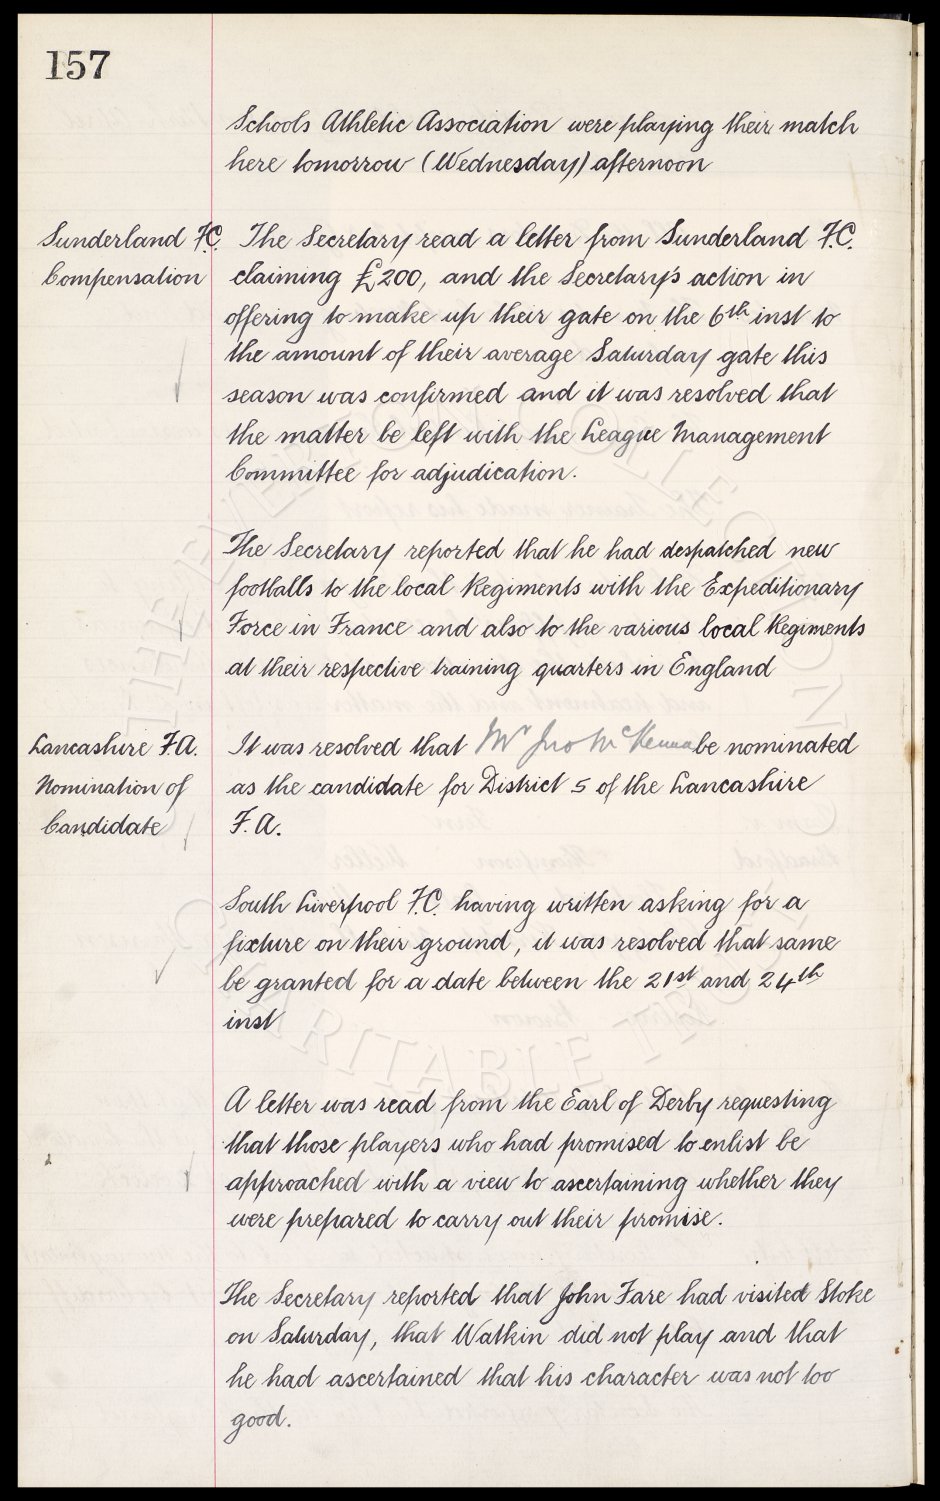 157
Schools Athletic Association were playing their match
here tomorrow (Wednesday) afternoon
Sunderland F.C.
Compensation
The Secretary read a letter from Sunderland F.C.
claiming £200, and the Secretary's action in
offering to make up their gate on the 6th inst to
the amount of their average Saturday gate this
season was confirmed and it was resolved that
the matter be left with the League Management
Committee for adjudication.
The Secretary reported that he had despatched new
footballs to the local Regiments with the Expeditionary
Force in France and also to the various local Regiments
at their respective training quarters in England
Lancashire F.A.
Nomination of
Candidate
It was resolved that Mr Jno McKenna be nominated
as the candidate for District 5 of the Lancashire
F.A.
South Liverpool F.C. having written asking for a
fixture on their ground, it was resolved that same
be granted for a date between the 21st and 24th
inst
A letter was read from the Earl of Derby requesting
that those players who had promised to enlist be
approached with a view to ascertaining whether they
were prepared to carry out their promise.
The Secretary reported that John Fare had visited Stoke
on Saturday, that Watkin did not play and that
he had ascertained that his character was not too
good.
THE EVERTON COLLECTION
CHARITABLE TRUST